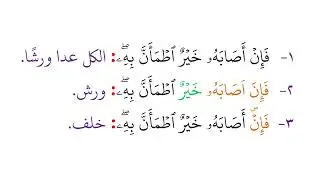 ١- فَإِنْ أَصَابَهُۥ خَيْرٌ ٱطْمَأَنَّ بِهِۦۖ: الكل عدا ورشًا.
٢- فَإِنَ اَصَابَهُۥ خَيْرٌ ٱطْمَأَنَّ بِهِۦۖ: ورش.
٣- فَإِنْۜ أَصَابَهُۥ خَيْرٌ ٱطْمَأَنَّ بِهِۦۖ: خلف.